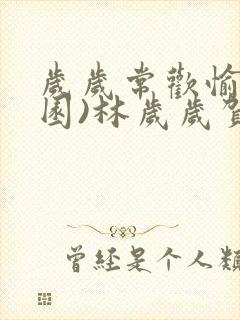 歲歲常歡愉
園)林歲歲
曾经是个人類